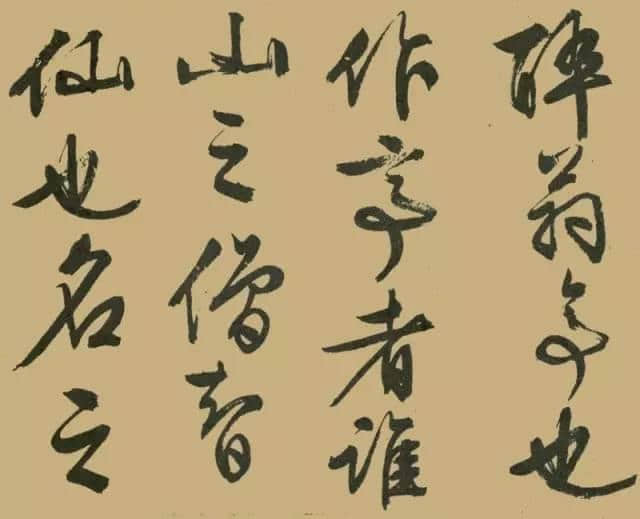 醉翁亭也
作亭者誰
山之僧智
仙也名之